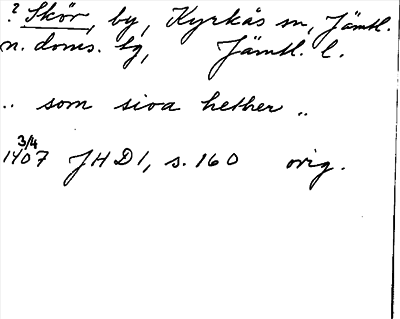 ? Skör, by, Kyrkås sn, Jämtl.
n. doms. bg, Jämtl. l.
.. som siva hether ..
3/4
1407 JHD 1, s. 160 orig.